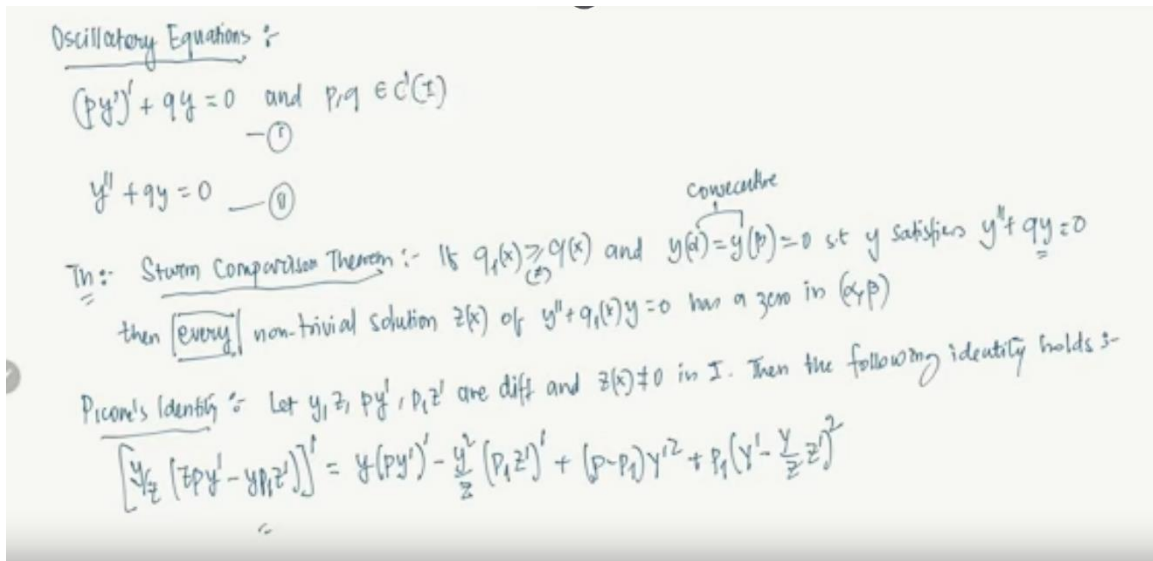 Oscillatory Equations :-
(py')' + qy = 0 and p, q ∈ C'(I)
—①
y'' + qy = 0 —②
consecutive
Th:- Sturm Comparison Theorem :- If q₁(x) ≥ q(x) and y(α) = y(β) = 0 s.t y satisfies y'' + qy = 0
(≢)
then every non-trivial solution z(x) of y'' + q₁(x)y = 0 has a zero in (α, β)
Picone's Identity :- Let y, z, py', p₁z' are diff and z(x) ≠ 0 in I. Then the following identity holds :-
[y/z (zpy' - yp₁z')]' = y(py')' - y²/z (p₁z')' + (p-p₁)y'² + p₁(y' - y/z z')²